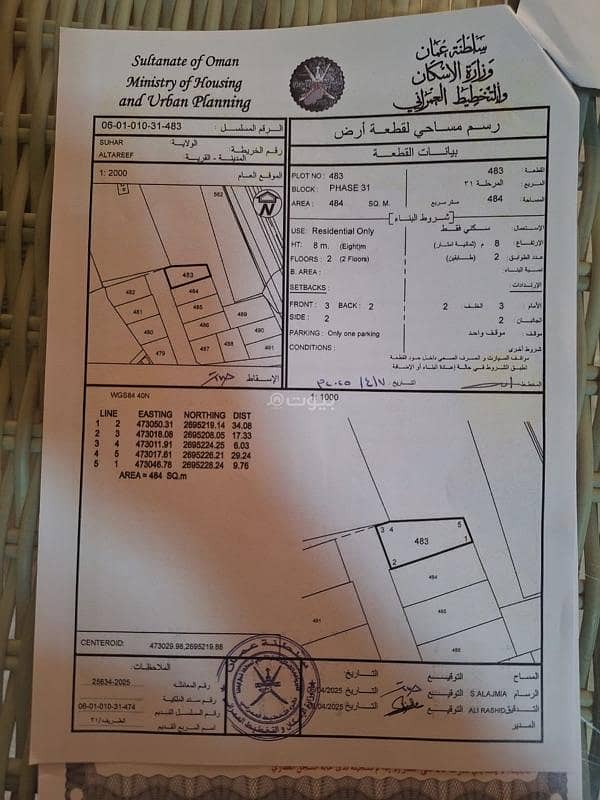 Sultanate of Oman
Ministry of Housing
and Urban Planning
سلطنة عمان
وزارة الإسكان
والتخطيط العمراني
06-01-010-31-483 الرقم المسلسل :
SUHAR الولاية
ALTAREEF رقم الخريطة :
المدينة - القرية
1: 2000 الموقع العام
رسم مساحي لقطعة أرض
بيانات القطعة
PLOT NO : 483
483 القطعة :
BLOCK : PHASE 31
المرحلة ٣١ المربع :
AREA : 484 SQ. M.
484 متر مربع المساحة :
شروط البناء
USE: Residential Only
سكني فقط الإستعمال:
HT: 8 m. (Eight)m
8 م (ثمانية امتار) الإرتفاع
FLOORS : 2 (2 Floors)
2 (طابقين) عدد الطوابق:
B. AREA :
نسبة البناء:
SETBACKS :
الإرتدادات:
FRONT : 3 BACK : 2
3 الأمام 2 الخلف :
SIDE : 2
2 الجانبان
PARKING : Only one parking
موقف واحد موقف :
CONDITIONS :
شروط أخرى
موقف السيارت و الصرف الصحي داخل حدود القطعة
تطبق الشروط في حالة إعادة البناء أو الإضافة
المخطط
التاريخ
562
483
482
484
481
485
480
486
479
487
489
490
488
491
الإسقاط
WGS84 40N
1: 1000
LINE EASTING NORTHING DIST
1 2 473050.31 2695219.14 34.08
2 3 473018.08 2695208.05 17.33
3 4 473011.91 2695224.25 6.03
4 5 473017.61 2695226.21 29.24
5 1 473046.78 2695228.24 9.76
AREA = 484 SQ.m
بيوت
3 4 5
483 1
2
484
485
481
486
CENTEROID: 473029.98,2695219.88
الملاحظات:
25634-2025 رقم المعاملة
رقم سند الملكية
06-01-010-31-474 رقم المسلسل القديم
الطريف/٣١ اسم المربع القديم
المساح التوقيع التاريخ
الرسام S.ALAJMIA التوقيع التاريخ /04/2025
التدقيق ALI RASHID التوقيع التاريخ /04/2025
المدير